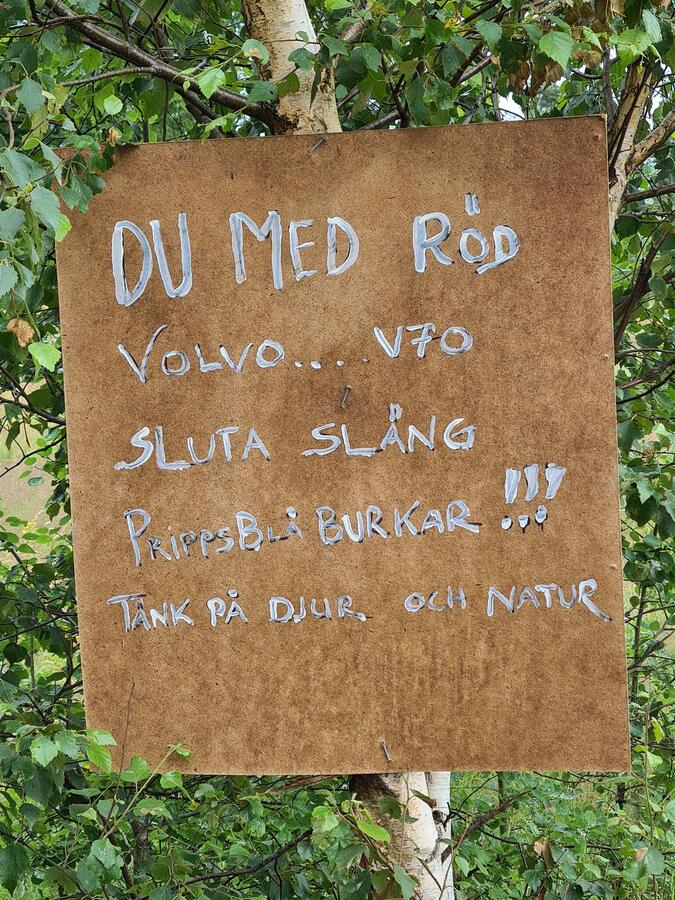 DU MED RÖD
VOLVO.... V70
SLUTA SLÄNG
PRIPPSBLÅ BURKAR !!!
TÄNK PÅ DJUR OCH NATUR